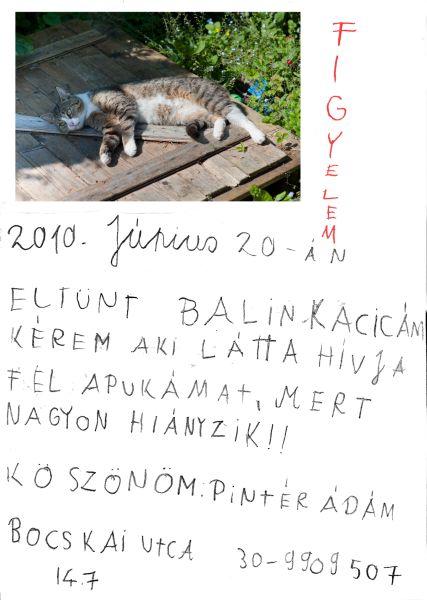 FIGYELEM
2010. Június 20-ÁN
ELTŰNT BALINKACICÁM
KÉREM AKI LÁTTA HÍVJA
FEL APUKÁMAt, MERT
NAGYON HIÁNYZIK!!
KÖSZÖNÖM: PiNtÉR ÁDÁM
BOCSKAI UtCA 30-9909507
14.7